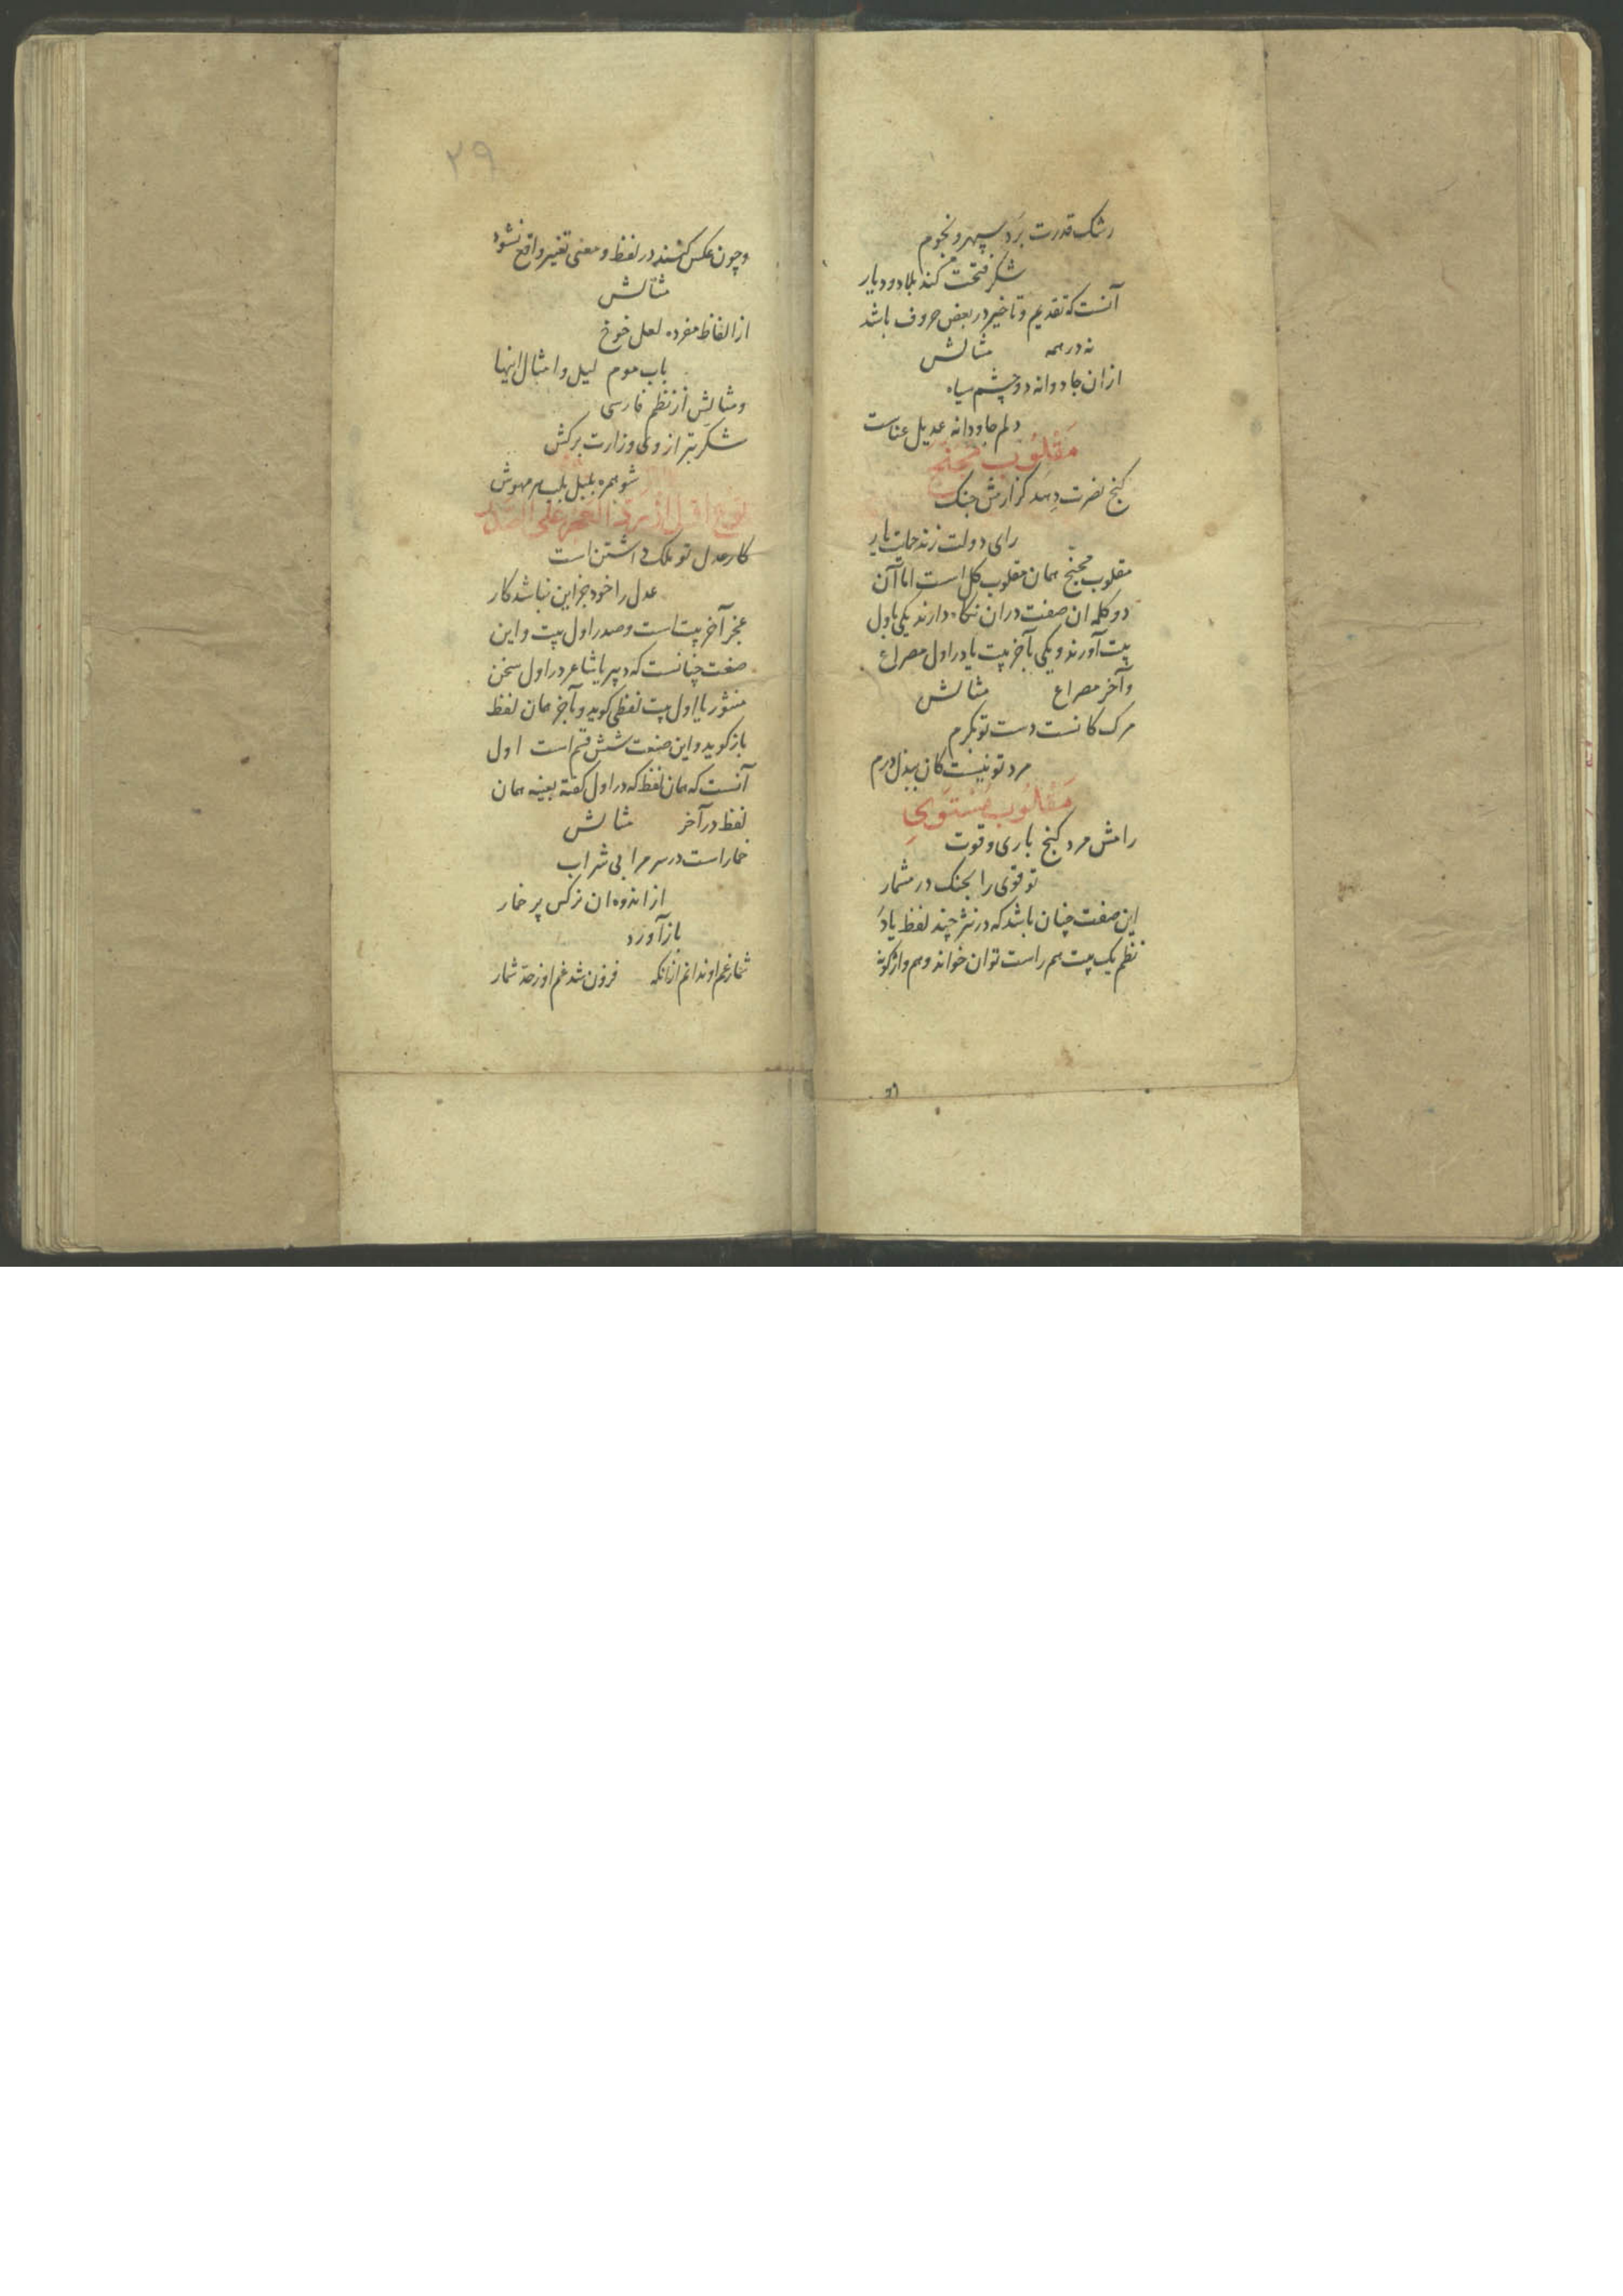 رشک قدرت برد سپهر و نجوم
شکر فتحت کند بلاد و دیار
آنست که تقدیم و تاخیر در بعض حروف باشد
نه در همه مثالش
ازان جادوانه دو چشم سیاه
دلم جاودانه عدیل عناست
مقلوب مجنح
کنج نصرت دهد کزارش جنک
رای دولت زند حمایت یار
مقلوب مجنح همان مقلوب کل است اما آن
دو کلمه ان صفت دران نکاه دارند یکی باول
بیت آورند و یکی بآخر بیت یا در اول مصراع
و آخر مصراع مثالش
مرک کانست دست تو بکرم
مرد تو نیست کان ببذل درم
مقلوب مستوی
رامش مرد کنج باری و قوت
تو قوی را بجنک در مشمار
این صفت چنان باشد که در نثر چند لفظ یا در
نظم یک بیت هم راست توان خواند و هم واژکونه
۲۹
و چون عکس کنند در لفظ و معنی تغییر واقع نشود
مثالش
از الفاظ مفرده لعل خوخ
باب موم لیل و امثال اینها
و مثالش از نظم فارسی
شکر بترازوی وزارت برکش
شو همره بلبل بلب هر مهوش
نوع اول از رد العجز علی الصدر
کار عدل تو ملک داشتن است
عدل را خود بجز این نباشد کار
عجز آخر بیت است و صدر اول بیت و این
صنعت چنانست که دبیر یا شاعر در اول سخن
منثور یا اول بیت لفظی کوید و بآخر همان لفظ
باز کوید و این صنعت شش قسم است اول
آنست که همان لفظ که در اول کفته بعینه همان
لفظ در آخر مثالش
خمار است در سر مرا بی شراب
از اندوه ان نرکس پر خمار
باز آورد
شمار غم او ندانم ازانکه فزون شد غم او ز حد شمار